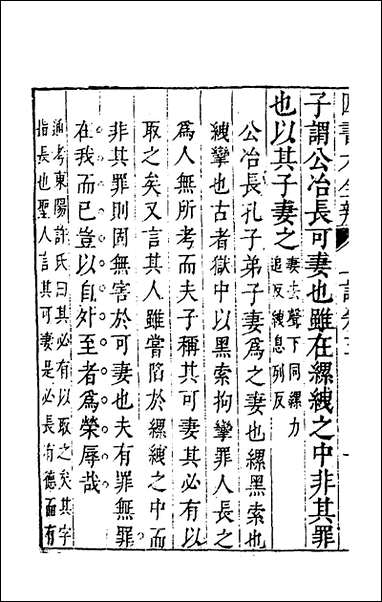 子謂公冶長可妻也雖在縲絏之中非其罪
也以其子妻之
妻去聲下同縲力
追反絏息列反
公冶長孔子弟子妻爲之妻也縲黑索也
絏攣也古者獄中以黑索拘攣罪人長之
爲人無所考而夫子稱其可妻其必有以
取之矣又言其人雖嘗陷於縲絏之中而
非其罪則固無害於可妻也夫有罪無罪
在我而已豈以自外至者爲榮辱哉
通考東陽許氏曰其必有以取之矣其字
指長也聖人言其可妻是必長有德面有